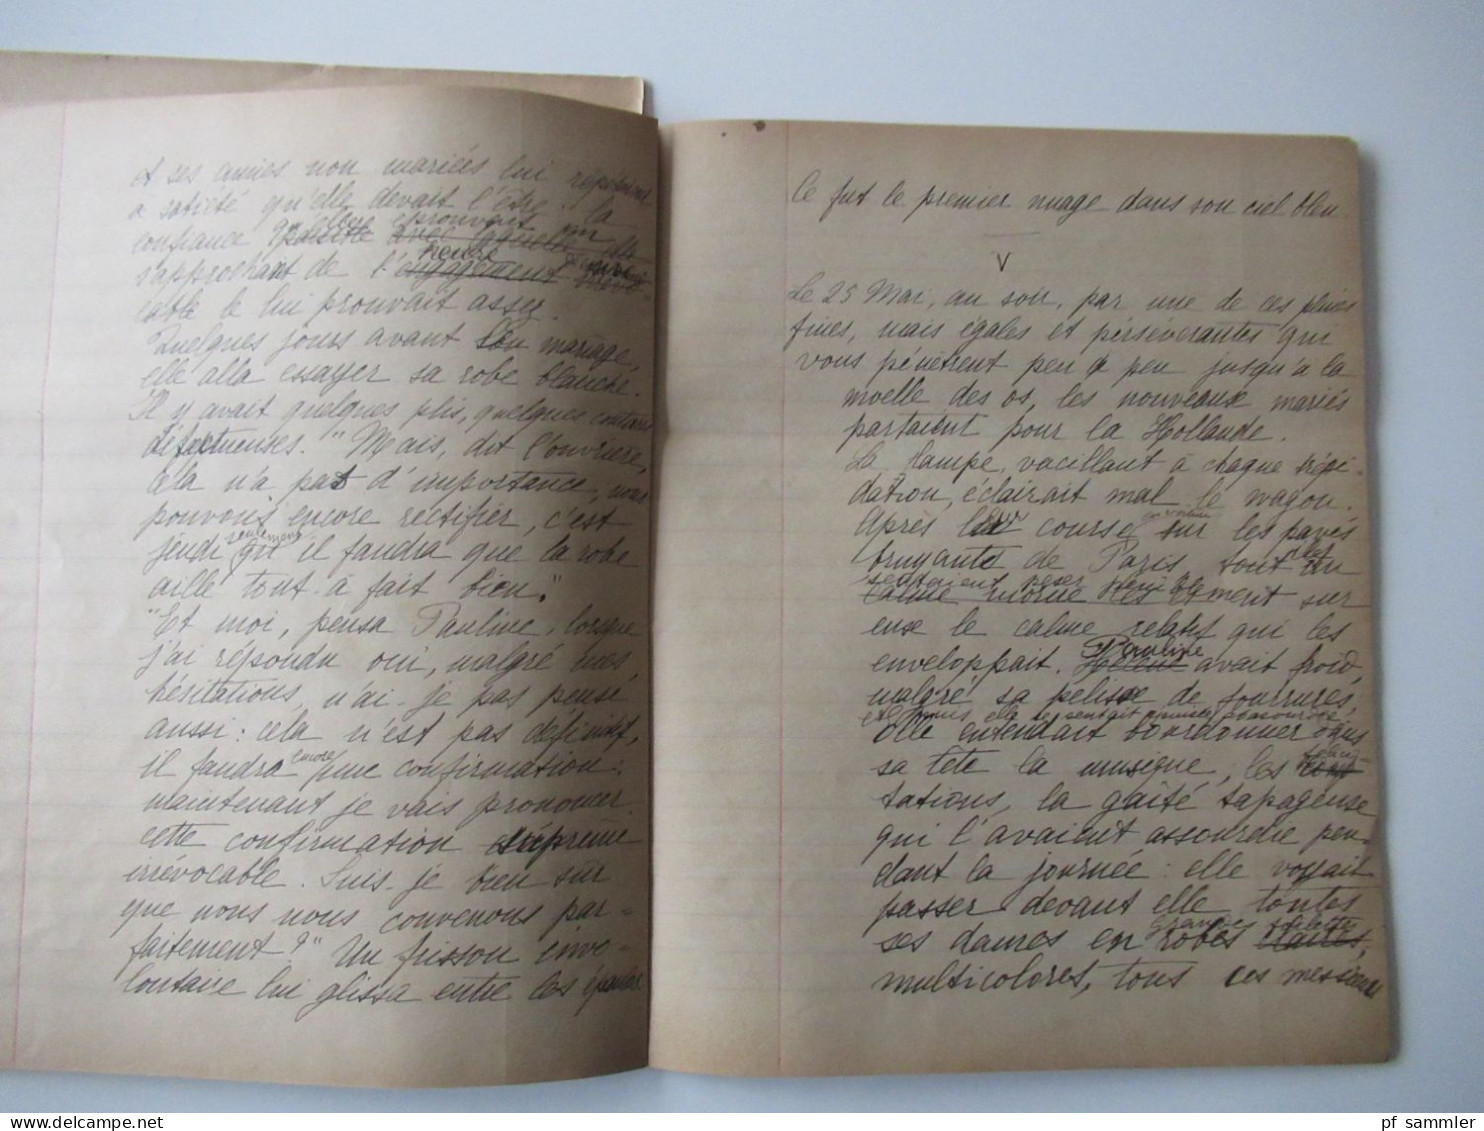 et ses amies non mariées lui répétaient
a satiété qu'elle devait l'être : la
qu'elle éprouvait en
confiance avec laquelle elle
heure
s'approchant de l'engagement irrévo-
cable le lui prouvait assez.
Quelques jours avant son mariage,
elle alla essayer sa robe blanche.
Il y avait quelques plis, quelques coutures
défectueuses. "Mais, dit l'ouvrière,
cela n'a pas d'importance, nous
pouvons encore rectifier, c'est
seulement
jeudi qu'il faudra que la robe
aille tout-à fait bien."
"Et moi, pensa Pauline, lorsque
j'ai répondu oui, malgré mes
hésitations, n'ai-je pas pensé
aussi : cela n'est pas définitif,
encore
il faudra une confirmation :
maintenant je vais prononcer
cette confirmation suprême
irrévocable. Suis-je bien sûr
que nous nous convenons par-
faitement ?" Un frisson invo-
lontaire lui glissa entre les épaules.
Ce fut le premier nuage dans son ciel bleu.
V
Le 25 Mai, au soir, par une de ces pluies
fines, mais égales et persévérantes qui
vous pénètrent peu à peu jusqu'à la
moelle des os, les nouveaux mariés
partaient pour la Hollande.
La lampe, vacillant à chaque trépi-
dation, éclairait mal le wagon.
en voiture
Après la course sur les pavés
bruyants de Paris tous les
sentaient peser
calme morne sur
eux le calme relatif qui les
Pauline
enveloppait. Hélène avait froid
malgré sa pelisse de fourrures,
et puis elle se sentait
elle entendait bourdonner dans
sa tête la musique, les félici-
tations, la gaîté tapageuse
qui l'avaient assourdie pen-
dant la journée : elle voyait
passer devant elle toutes
grande toilette
ses dames en robes claires,
multicolores, tous ces messieurs
pf sammler